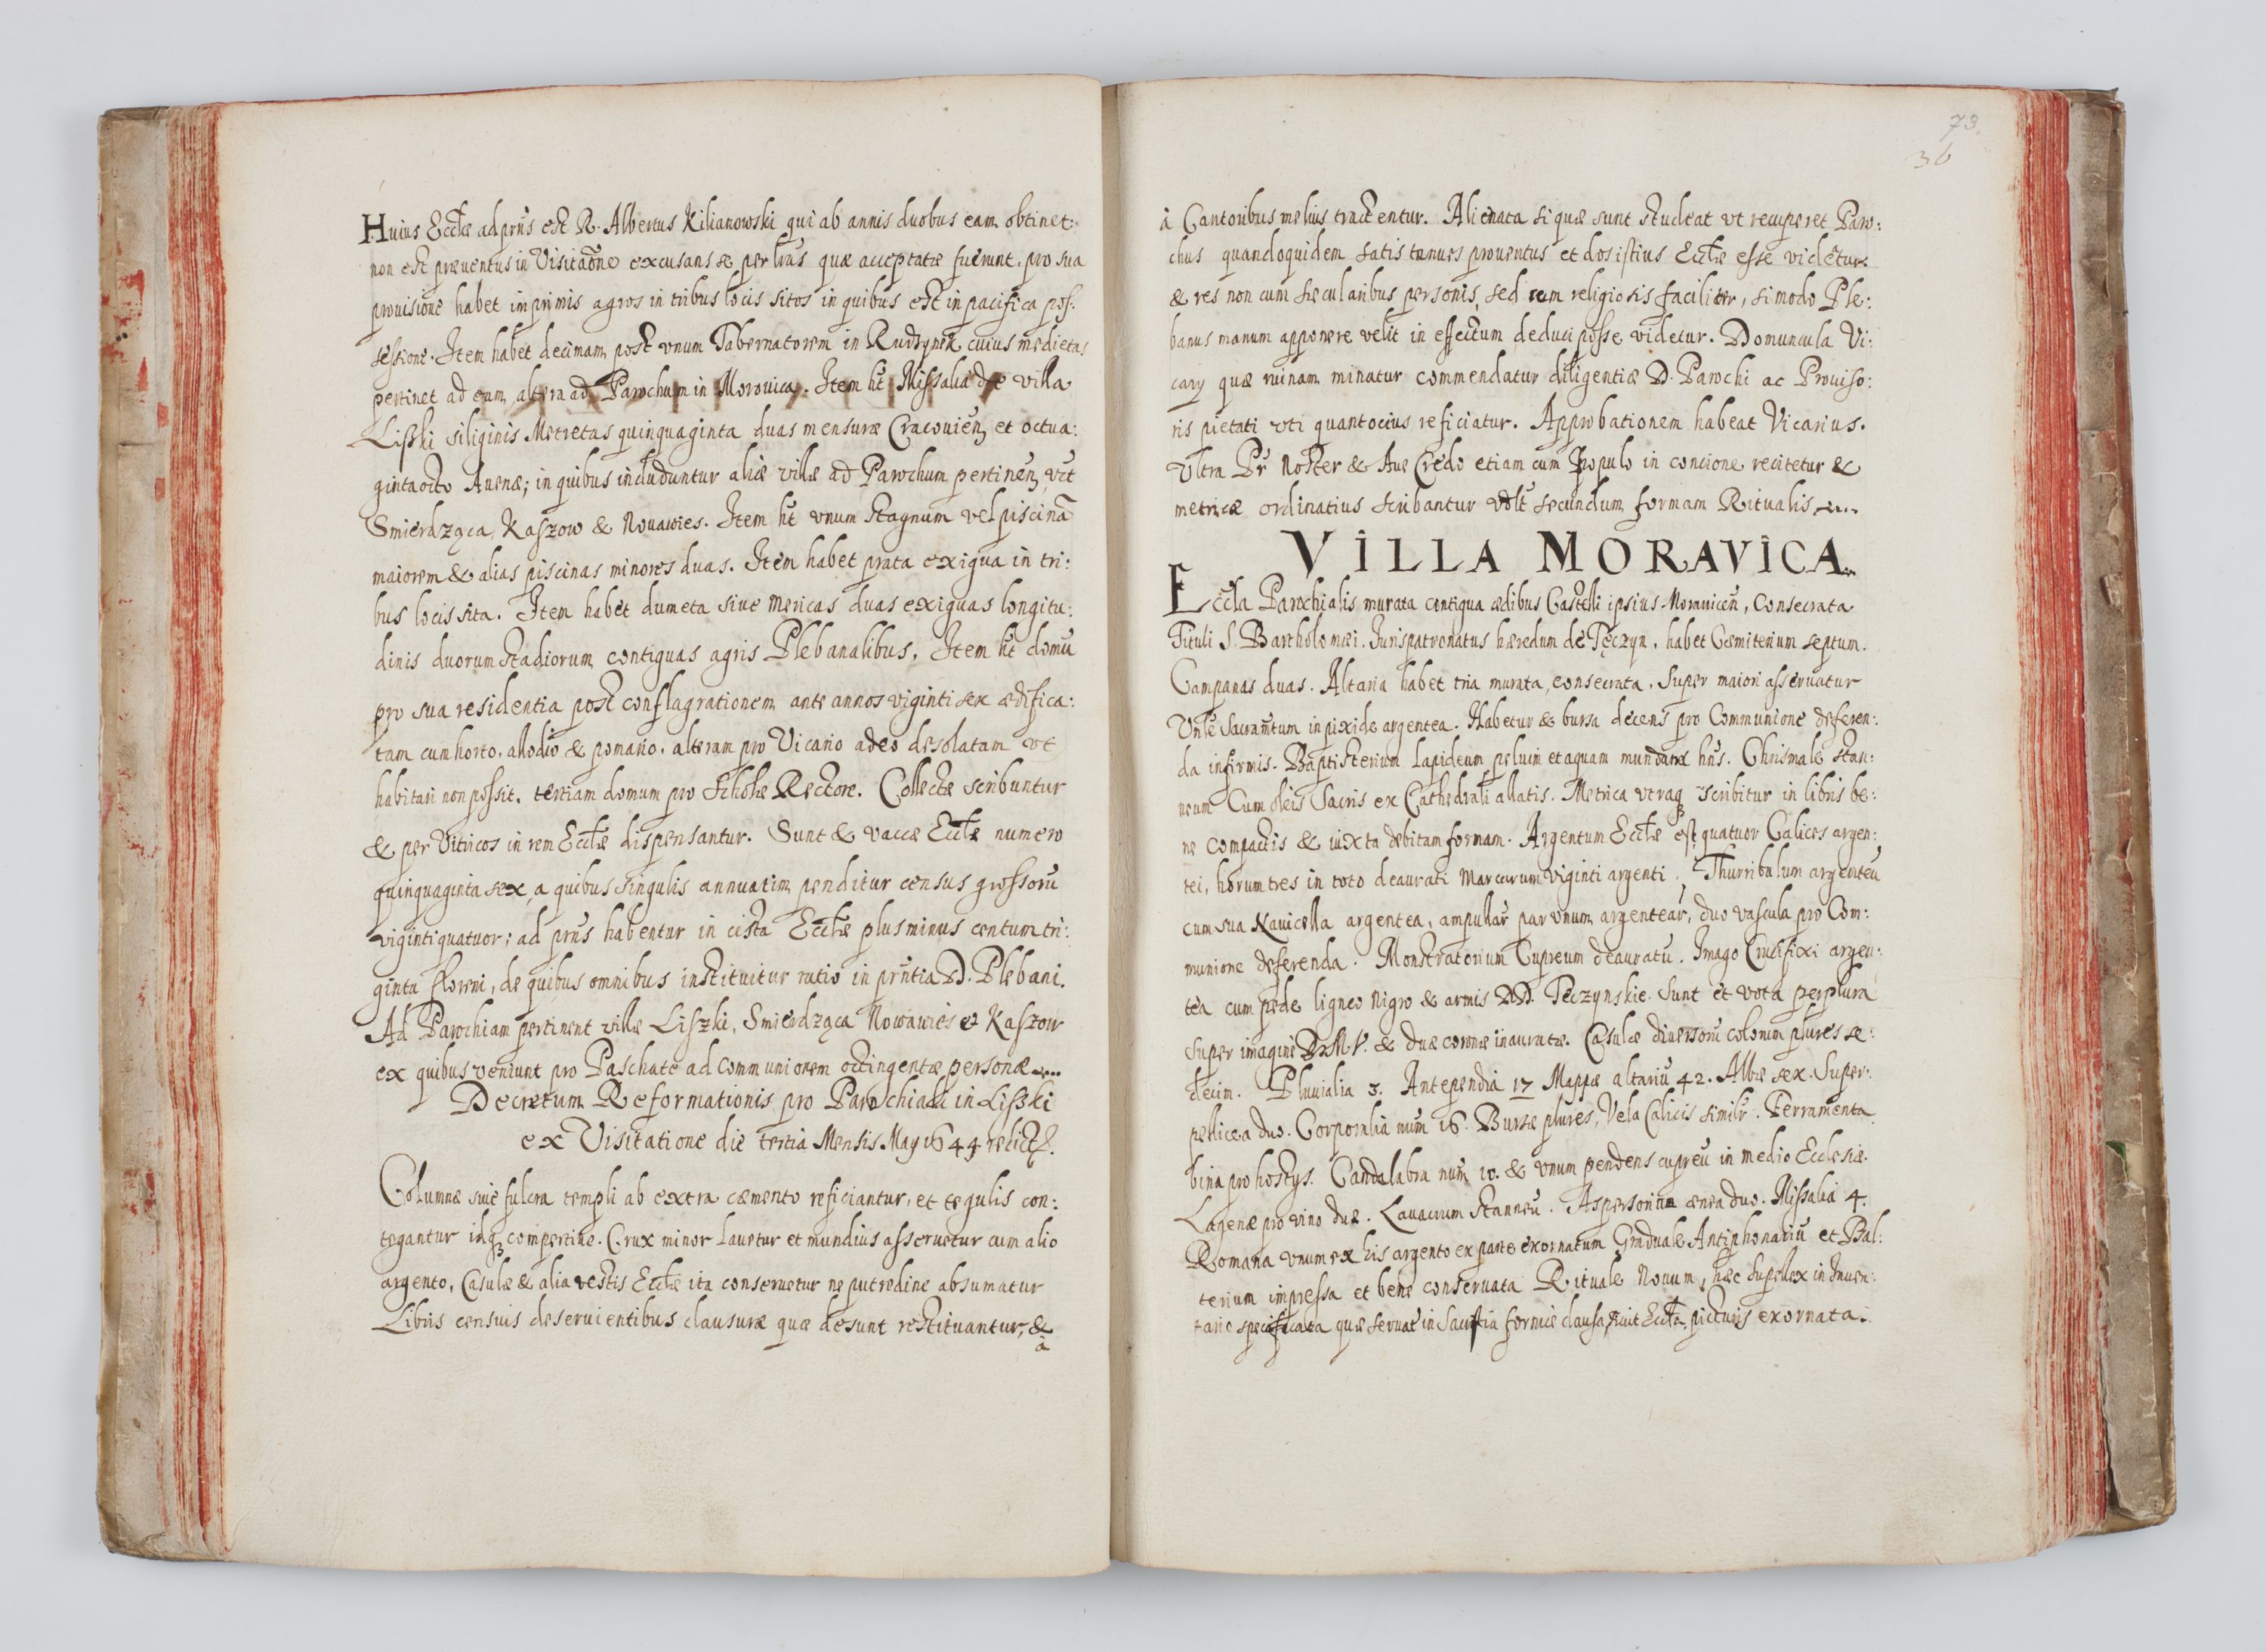 Huius Eccłæ ad prñs est R. Albertus Kilianowski qui ab annis duobus eam obtinet:
non est præventus in Visitãone excusans se per lrãs quæ acceptatæ fuerunt. pro sua
provisione habet imprimis agros in tribus locis sitos in quibus est in pacifica pos:
sessione. Item habet decimam post vnum Tabernatorem in Rudzynek cuius medietas
pertinet ad eum altera ad Parochum in Morovica. Item ht Missalia de villa
Liszki siliginis Metretas quinquaginta duas mensuræ Cracovień et octua:
gintaocto Auenæ; in quibus includuntur aliæ villæ ad Parochum pertineñ vt
Smierdząca, Kaszow & Nouawies. Item ht vnum stagnum vel piscinã
maiorem & alias piscinas minores duas. Item habet prata exigua in tri:
bus locis sita. Item habet dumeta siue mericas duas exiguas longitu:
dinis duorum stadiorum contiguas agris Plebanalibus. Item ht domũ
pro sua residentia post conflagrationem ante annos viginti sex ædifica:
tam cum horto, allodio & pomario. alteram pro Vicario adeo desolatam vt
habitari non possit. tertiam domum pro Scholæ Rectore. Collectæ scribuntur
& per Vitricos in rem Eccłæ dispensantur. Sunt & vaccæ Eccłæ numero
quinquaginta sex, a quibus singulis annuatim penditur census grossorũ
viginti quatuor; ad prñs habentur in cista Eccłæ plus minus centum tri:
ginta floreni, de quibus omnibus instituitur ratio in prñtia D. Plebani.
Ad Parochiam pertinent villæ Liszki, Smierdząca Nowawies et Kaszow
ex quibus veniunt pro Paschate ad Communionem octingentæ personæ....
Decretum Reformationis pro Parochiali in Liszki
ex Visitatione die tertia Mensis May 1644 relict.
Columnæ siue fulcra templi ab extra cæmento reficiantur, et tegulis con:
tegantur itaq compertine. Crux minor lauetur et mundius asseruetur cum alio
argento, Casulæ & alia vestis Eccłæ ita conseruetur ne putredine absumatur
Libris censuis deseruientibus clausuræ quæ desunt restituantur, &
a
73.
36
à Cantoribus melius tractentur. Alienata si quæ sunt studeat vt recuperet Paro:
chus quandoquidem satis tenues prouentus et dos istius Eccłæ esse videtur
& res non cum sæcularibus personis, sed cum religiosis faciliter, si modo Ple:
banus manum apponere velit in effectum deduci posse videtur. Domuncula Vi:
carij quæ ruinam minatur commendatur diligentiæ D. Parochi ac Prouiso:
ris pietati vti quantocius reficiatur. Approbationem habeat Vicarius.
Vltra Pr̃ Noster & Aue Credo etiam cum Populo in concione recitetur &
metricæ ordinatius scribantur secundum formam Ritualis....
VILLA MORAVICA.
Eccła Parochialis murata contigua ædibus Castelli ipsius Morauiceñ, Consecrata
Tituli S. Bartholomæi. Iurispatronatus hæredum de Tęczyn, habet Cæmiterium septum.
Campanas duas. Altaria habet tria murata, consecrata. Super maiori asseruatur
Vñle Sacramtum in pixide argentea. Habetur & bursa decens pro Communione deferen:
da infirmis. Baptisterium lapideum peluim et aquam mundam hñs. Chrismale stan:
neum Cum oleis Sacris ex Cathedrali allatis. Metrica vtraq scribitur in libris be:
ne compactis & iuxta debitam formam. Argentum Eccłæ est quatuor Calices argen:
tei, horum tres in toto deaurati Marcarum viginti argenti. Thurribulum argenteũ
cum sua Nauicella argentea, ampullar par vnum argentear, duo vascula pro Com:
munione deferenda. Monstratorium Cupreum deauratũ. Imago Crucifixi argen:
tea cum pede ligneo nigro & armis DD. Tęczynskie. Sunt et vota perplura
super imagine B. M. V. & duæ coronæ inauratæ. Casulæ diuersorũ colorum plures se:
decim. Pluuialia 3. Antependia 17 Mappæ altariũ 42. Albæ sex. Super:
pellicea duo. Corporalia num 16. Bursæ plures, Vela Calicis similr. Ferramenta
bina pro hostys. Candelabra num 10. & vnum pendens cupreũ in medio Ecclesiæ.
Lagenæ pro vino duæ. Lauacrum stanneũ. Aspersoria ænea duo. Missalia 4.
Romana vnum ex his argento ex parte exornatum Graduale Antiphonariũ et Psal:
terium impressa et bene conseruata Rituale Nouum, hæc supellex in Inuen:
tario specificata quæ seruat in Sacrstia fornice clausa, sicut Eccła picturis exornata.